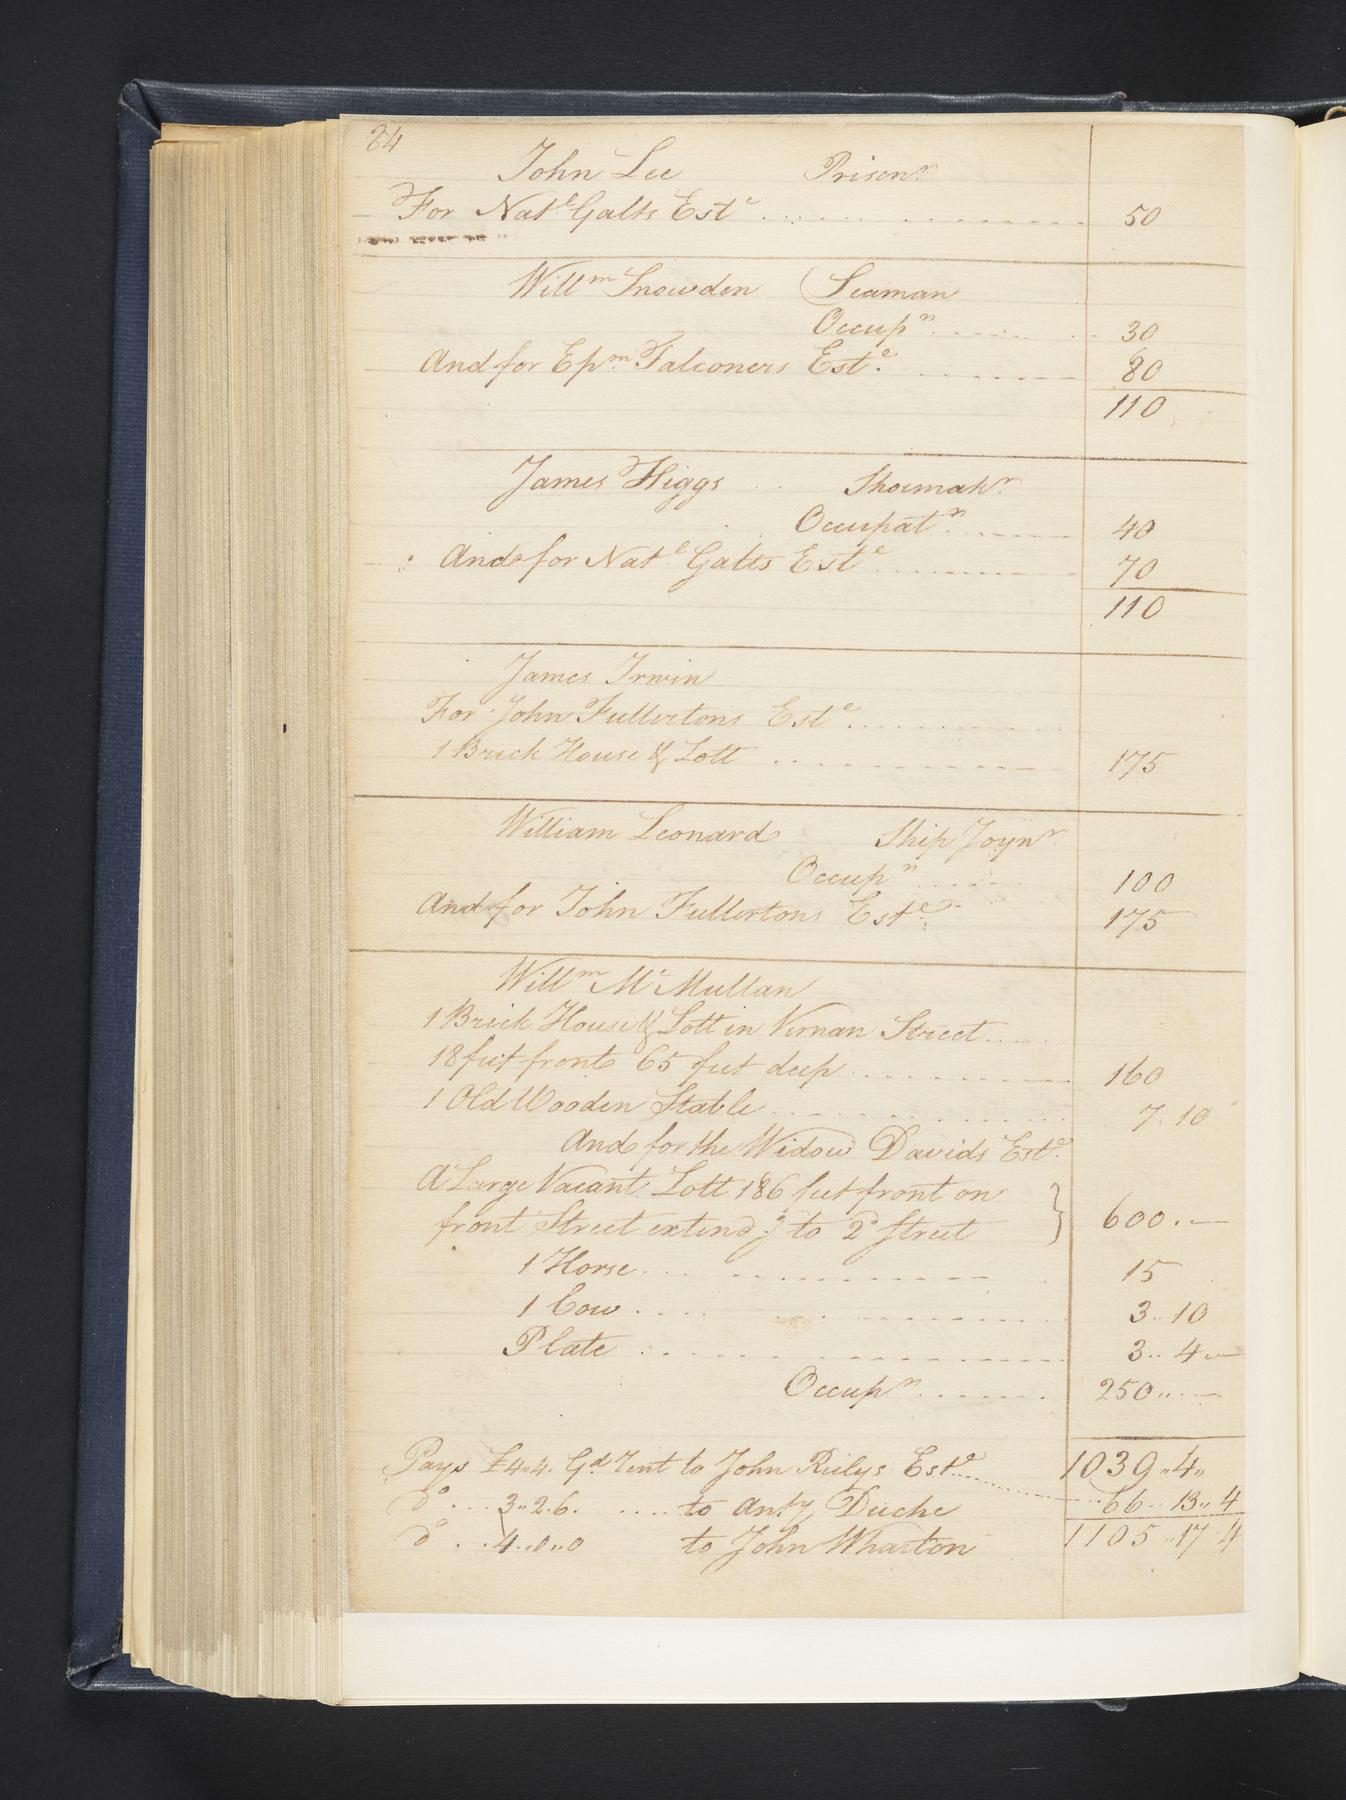 84
John Lee Prisonr
For Natl Galts Este 50
Willm Snowden Seaman
Occupn 30
And for Epm Falconers Este 80
110
James Higgs Shoemakr
Occupatn 40
And for Natl Galts Este 70
110
James Irwin
For John Fullertons Este
1 Brick House & Lott 175
William Leonard Ship Joynr
Occupn 100
And for John Fullertons Este 175
Willm Mc Mullan
1 Brick House & Lott in Vernan Street
18 feet front 65 feet deep 160
1 Old Wooden Stable 7. 10
And for the Widow Davids Este
A Large Vacant Lott 186 feet front on
front Street extendg to 2d Street 600. —
1 Horse 15
1 Cow 3.. 10
Plate 3.. 4 —
Occupn 250.. —
Pays £4..4. Gd Rent to John Rielys Este 1039..4..
do 3..2.6. to Anty Duche 66.. 13.. 4
do 4..0..0 to John Wharton 1105..17.4